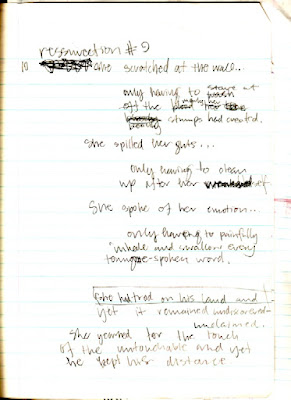 resurrection #9
she scratched at the wall...
only having to start at
off the
stumps had created.
she spilled her guts...
only having to clean
up after her self.
She spoke of her emotion...
only having to painfully
inhale and swallow every
tongue-spoken word.
she hid trod on his land and
yet it remained undiscovered-
unclaimed.
She yearned for the touch
of the untouchable and yet
he kept his distance